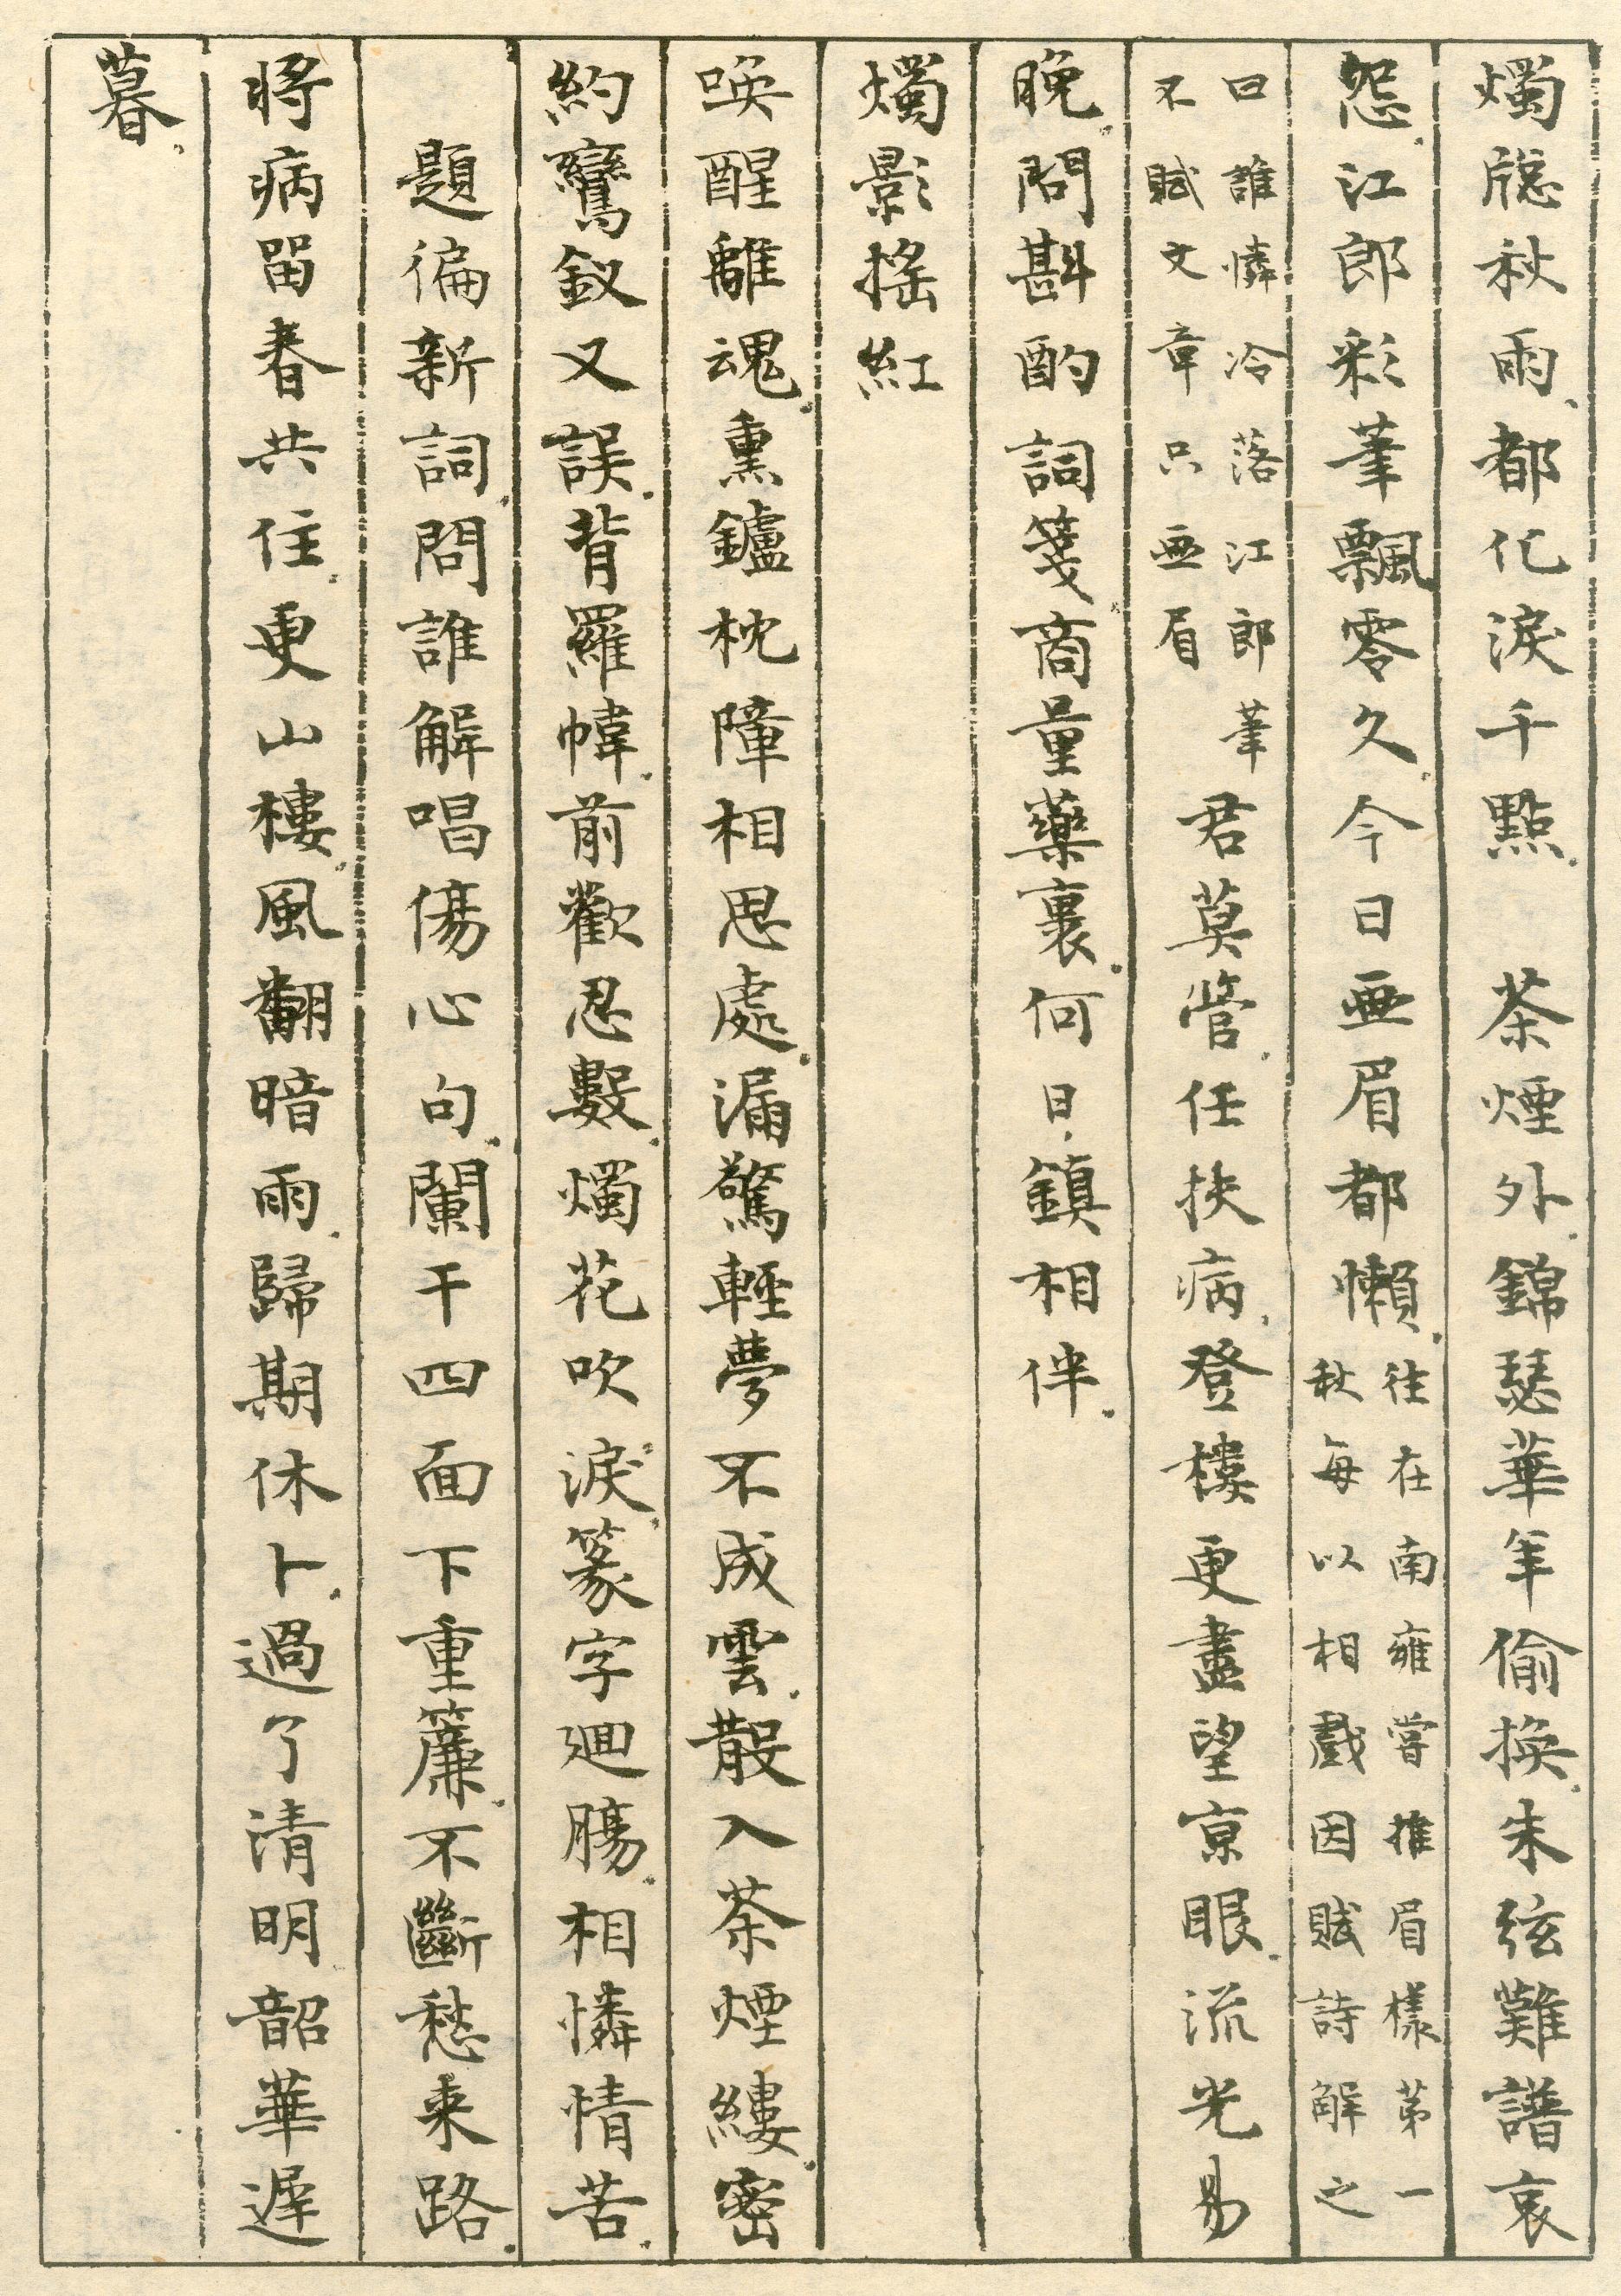 燭牕秋雨、都化淚千點。　茶煙外、錦瑟華年偷換。朱弦難譜哀
怨。江郎彩筆飄零久。今日畫眉都懶。往在南雍嘗推眉樣第一
秋每以相戲因賦詩解之
曰誰憐冷落江郎筆
不賦文章只畫眉
君莫管。任扶病、登樓更盡望京眼。流光易
晚。問斟酌詞箋、商量藥裹。何日、鎮相伴。
燭影搖紅
喚醒離魂。熏鑪枕障相思處。漏驚輕夢不成雲。散入茶煙縷。密
約鸞釵又誤。背羅幃。前歡忍數。燭花吹淚。篆字迴腸。相憐情苦。
題徧新詞。問誰解唱傷心句。闌干四面下重簾。不斷愁來路。
將病留春共住。更山樓。風翻暗雨。歸期休卜。過了清明韶華遲
暮。